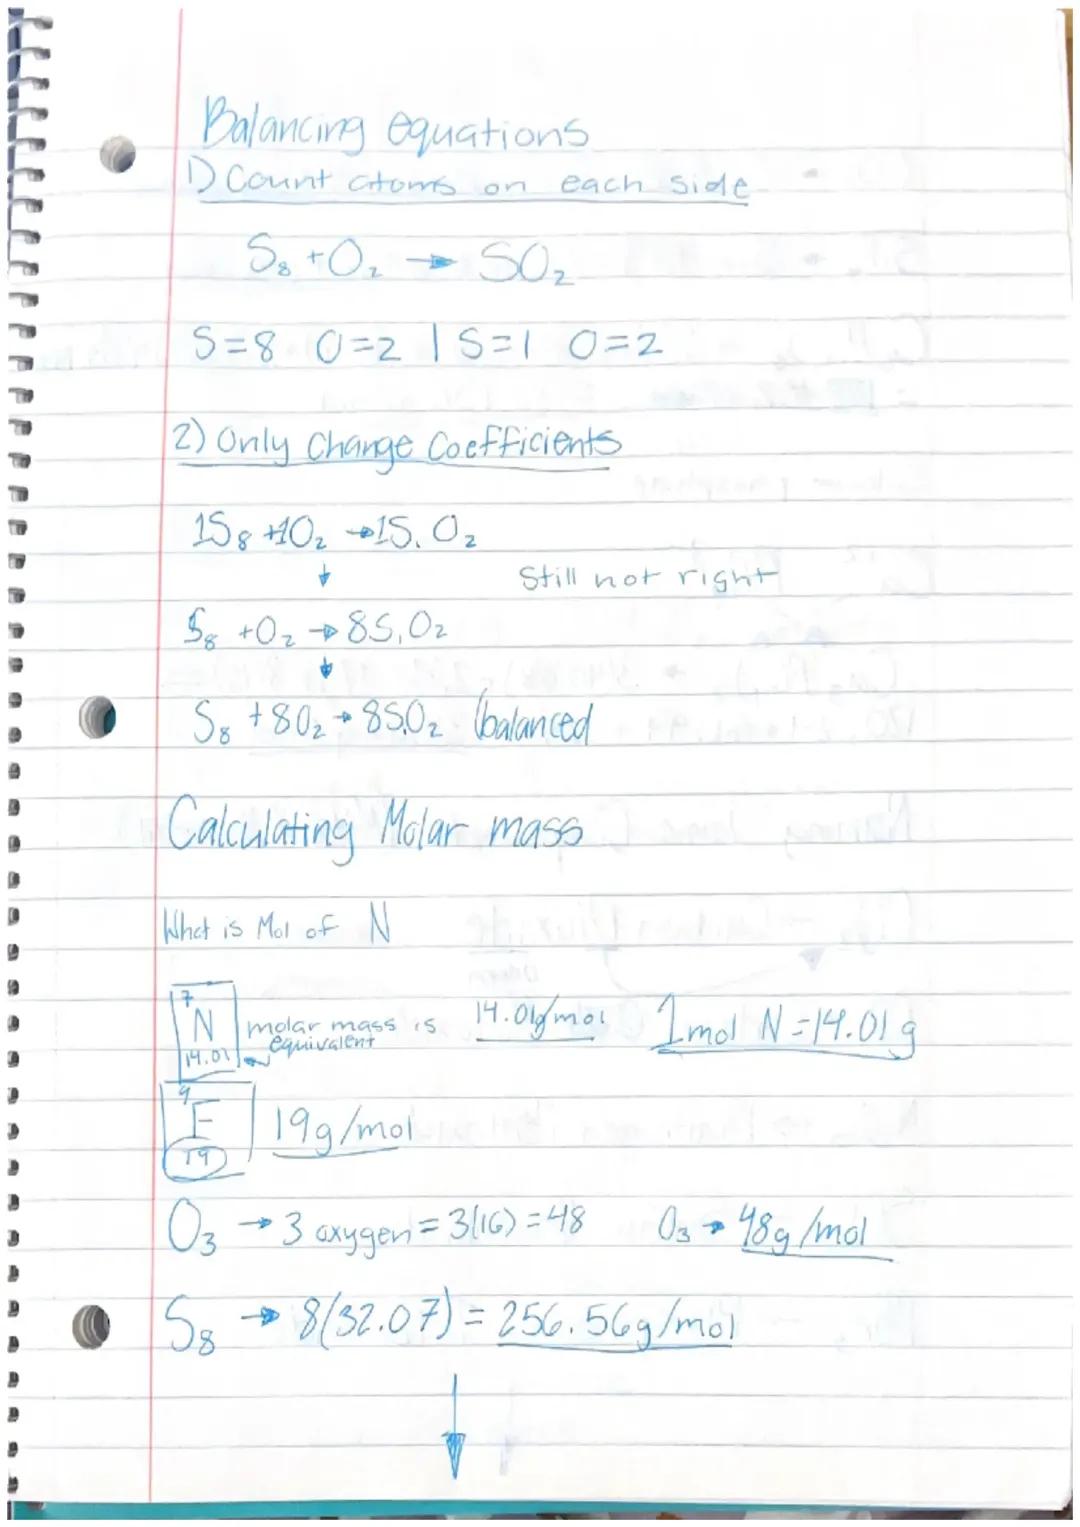 Balancing equations
1) Count atoms on each side
S₈ + O₂ → SO₂
S=8 O=2 | S=1 O=2
2) Only Change Coefficients
1S₈ +1O₂ →1S₁O₂
Still not right
S₈ +O₂ → 8S₁O₂
S₈ +8O₂ → 8S₁O₂ (balanced
Calculating Molar mass
What is Mol of N
7
N
14.01
molar mass is
equivalent
14.01g/mol
1mol N=14.01g
9
F
19
19g/mol
O₃ → 3 oxygen = 3(16) = 48 O₃ → 48g/mol
S₈ → 8(32.07) = 256.56g/mol